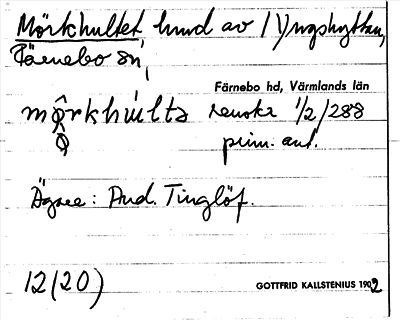 Mörkhultet hund av Lyngshyttan,
Färnebo sn,
Färnebo hd, Värmlands län
mörkhults renskr 1/2/288
prim. ant.
Ägare: And. Tinglöf.
12(20)
GOTTFRID KALLSTENIUS 1902